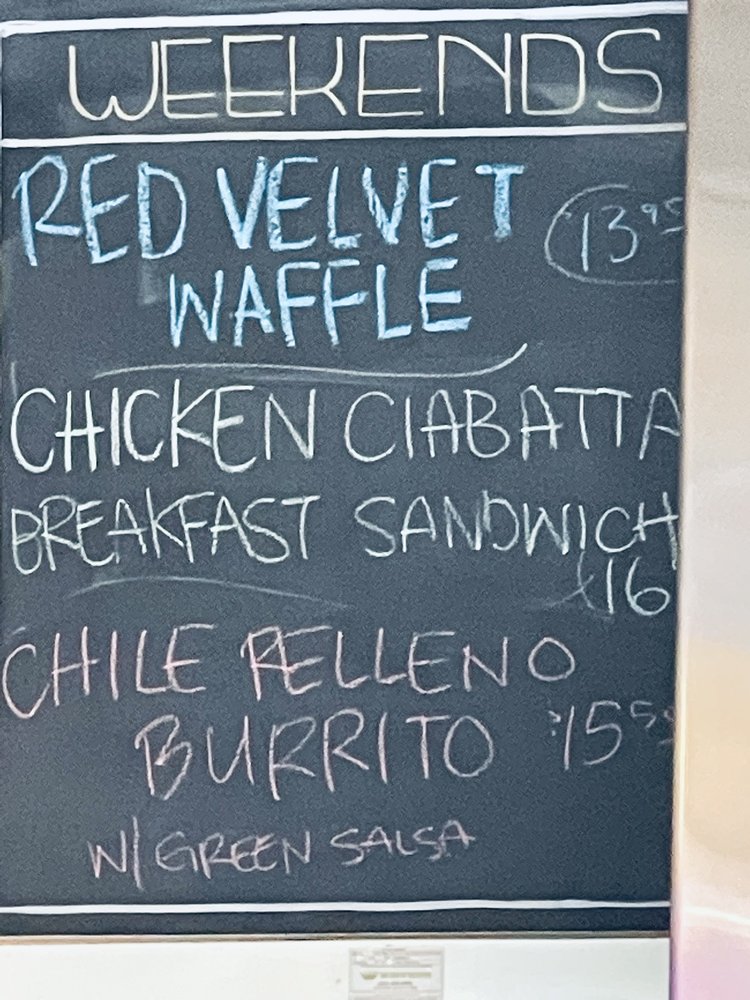 WEEKENDS
RED VELVET 13⁹⁵
WAFFLE
CHICKEN CIABATTA
BREAKFAST SANDWICH
16
CHILE RELLENO
BURRITO 15
W/ GREEN SALSA